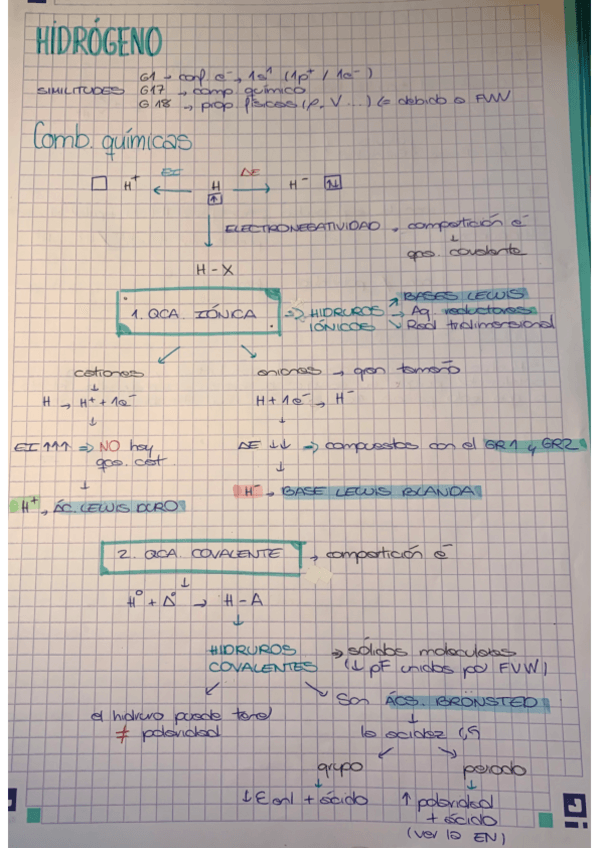 HIDRÓGENO
G1 → conf. e⁻, 1s¹ (1p⁺ / 1e⁻)
SIMILITUDES G17 → comp. químico
G18 → prop. físicas (ρ, V ...) (= debido a FVW
Comb. químicas
H⁺ ← EI H AE → H⁻
ELECTRONEGATIVIDAD, compartición e⁻
qca. covalente
H - X
1. QCA. IÓNICA => HIDRUROS IÓNICOS
BASES LEWIS
→ Ag. reductores
Red tridimensional
cationes aniones → gran tamaño
H → H⁺ + 1e⁻ H + 1e⁻ → H⁻
EI ↑↑↑ => NO hay AE ↓↓ => compuestos con el GR1 y GR2
qca. cat.
H⁺, ÁC. LEWIS DURO H⁻, BASE LEWIS BLANDA
2. QCA. COVALENTE, compartición e⁻
H° + A° → H-A
HIDRUROS → sólidos moleculares
COVALENTES (↓ pF unidos por FVW)
Son ÁCS. BRÖNSTED
el hidruro puede tener
≠ polaridad
la acidez
grupo periodo
↓ E enl + ácido ↑ polaridad
+ ácido
(ver la EN)